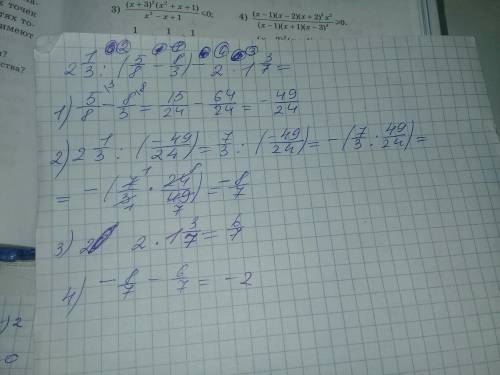 3) (x+3)³(x²+x+1) / x³−x+1 ≤0; 4) (x−1)(x−2)(x+2)³x² / (x−1)(x+1)(x−3)² >0.
2 1/3 : (5/8 − 8/3) − 2 · 1 3/7 =
1) 5/8 − 8/3 = 15/24 − 64/24 = − 49/24
2) 2 1/3 : (−49/24) = 7/3 : (−49/24) = −(7/3 : 49/24) =
= −(7/3 · 24/49) = −8/7
3) 2 · 1 3/7 = 6/7
4) − 8/7 − 6/7 = −2